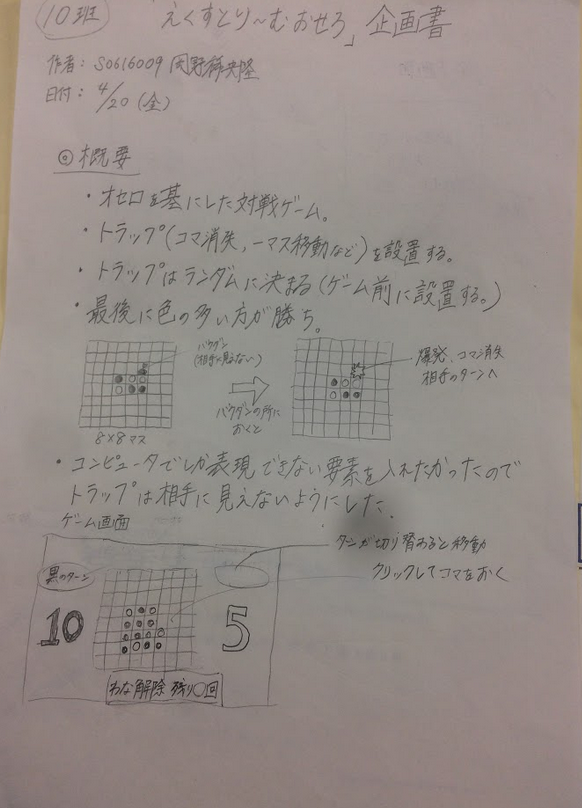 10班
「えくすとり～む おせろ」企画書
作者: S0616009 岡野
日付: 4/20 (金)
◎概要
・オセロを基にした対戦ゲーム。
・トラップ(コマ消失, 一マス移動など)を設置する。
・トラップはランダムに決まる(ゲーム前に設置する。)
・最後に色の多い方が勝ち。
バクダン
(相手に見えない)
8×8マス
バクダンの所に
おくと
爆発、コマ消失
相手のターンへ
・コンピュータでしか表現できない要素を入れたかったので
トラップは相手に見えないようにした。
ゲーム画面
黒のターン
10
5
わな解除 残り○回
ターンが切り替わると移動
クリックしてコマをおく